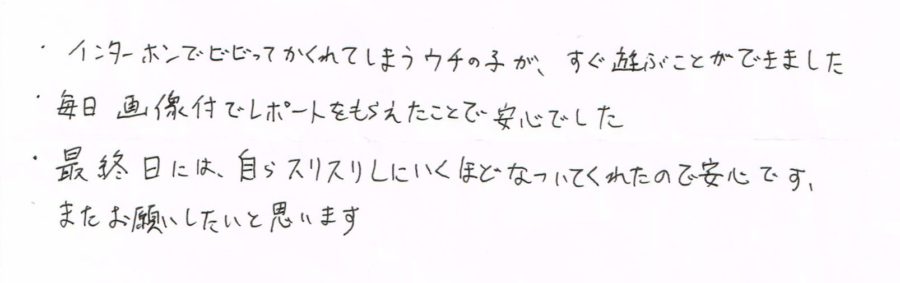 ・ インターホンでビビってかくれてしまうウチの子が、すぐ遊ぶことができました
・ 毎日 画像付でレポートをもらえたことで安心でした
・ 最終日には、自らスリスリしにいくほどなついてくれたので安心です、
またお願いしたいと思います